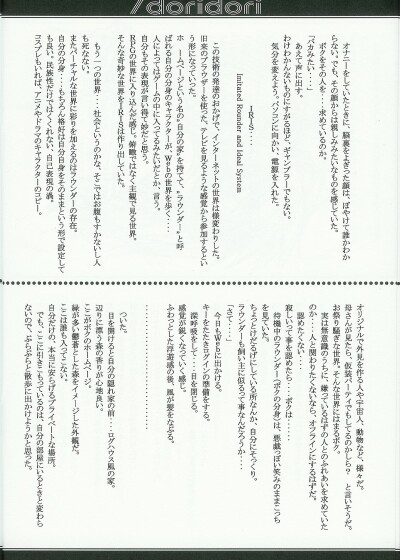 /doridori
オナニーをしていたときに、脳裏をよぎった顔は、ぼやけて誰かわか
らない。でも、その顔からは親しみみたいなものを感じていた。
ボクをその人を……求めているのか。
「バカみたい……」
あえて声に出す。
わけわかんないものにすがるほど、ギャンブラーでもない。
気分を変えよう。パソコンに向かい、電源を入れた。
IRIS
Imitated Rounder and Ideal System
この技術の発達のおかげで、インターネットの世界は様変わりした。
旧来のブラウザーを使った、テレビを見るような感覚から参加するとい
う形になっていった。
ホームページという名の『自分の家』を持てて、『ラウンダー』と呼
ばれる自分の分身のキャラクターが、Webの世界を歩く……
人によってはゲームの中に入ってるみたいだとか、言う。
自分もその表現が言い得て妙だと思う。
RPGの世界に入り込んだ感じ。俯瞰ではなく主観で見る世界。
そんな奇妙な世界をIRISは作り出していた。
もう一つの世界……社会というのかな。そこではお腹もすかないし人
も死なない。
またバーチャルな世界に彩りを加えるのはラウンダーの存在。
自分の分身……もちろん格好は自分自身をそのままという形で設定して
も良い。民族性だけではくくれない、自己表現の渦。
コスプレもいれば、アニメやドラマのキャラクターのコピー。
オリジナルで外見を作る人や宇宙人、動物など、様々だ。
母さんが見たら、仮装パーティでもしてるのかしら？　と言いそうだ。
お祭り騒ぎな世界。そんな世界にはまるボク。
実は無意識のうちに、嫌っているはずの人とのふれあいを求めていた
のか……人と関わりたくないなら、オフラインにするはずだ。
認めたくない……
寂しいって事を認めたら……ボクは……
待機中のラウンダー（ボクの分身）は、悪戯っぽい笑みのままこっち
を見ていた。
ちょっとけだるげにしている所なんか、自分にそっくり。
ラウンダーも飼い主に似るって事なんだろうか……
「さて……」
今日もWebに出かける。
キーをたたきログインの準備をする。
深呼吸をして……目を閉じる。
感覚が鋭くなっていく感じ。
ふわっとした浮遊感の後、風が髪をなぶる。
ついた。
目を開けると自分の隠し家の前……ログハウス風の家。
辺りに漂う森の香りが心地良い。
ここがボクのホームページ。
緑が多い鬱蒼とした森をイメージした外観だ。
ここは誰も入ってこない。
自分だけの、本当に安らげるプライベートな場所。
でも、ここに引きこもっているのは、自分の部屋にいるときと変わら
ないので、ぶらぶらと散歩に出かけようかと思った。